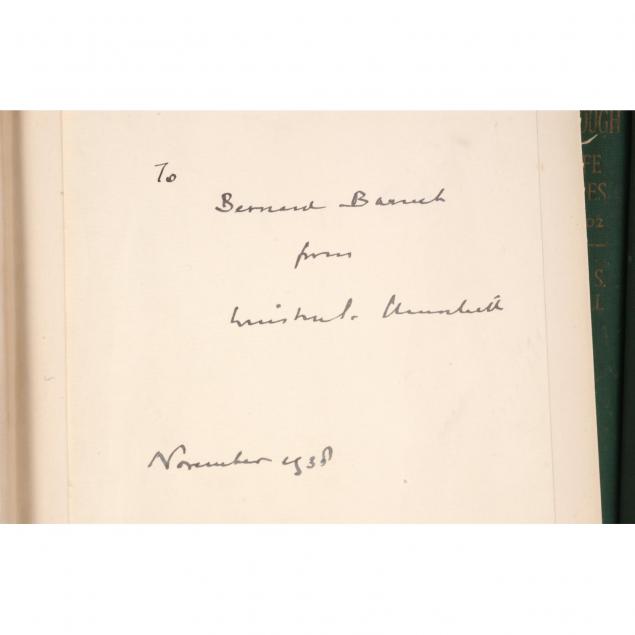 To
Bernard Baruch
from
Winston S. Churchill
November 1938
OUGH
FE
ES
02
S.
L